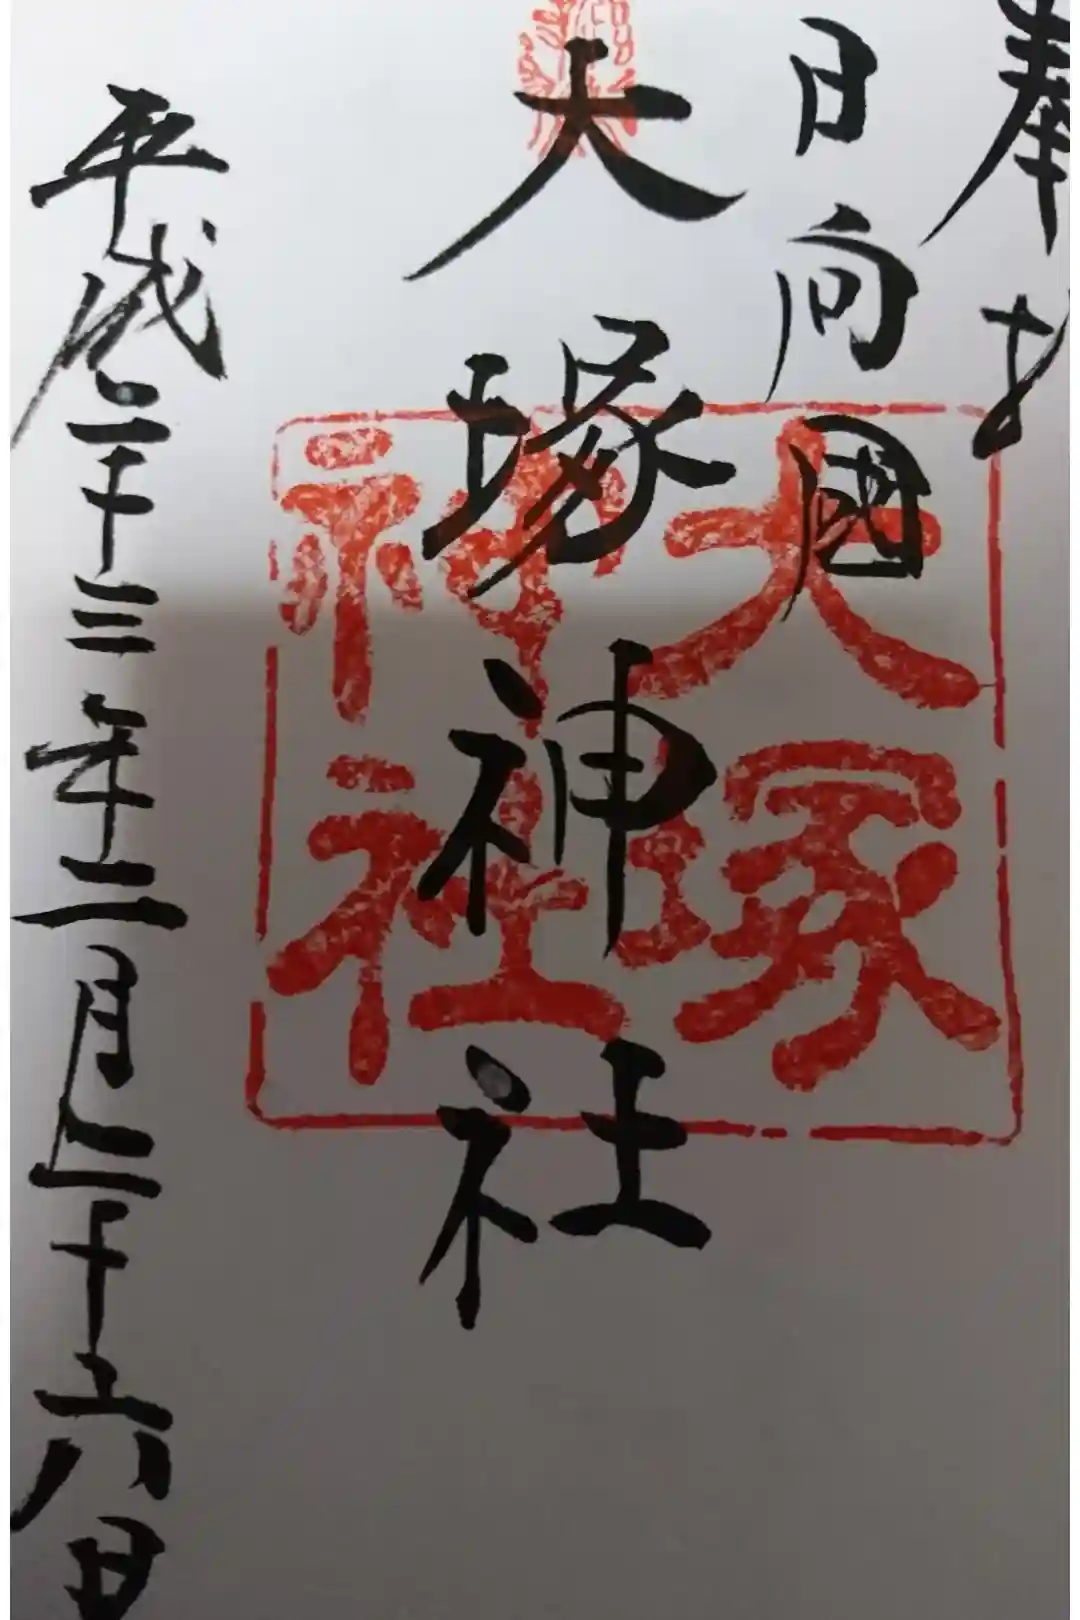 奉
日向國
大塚神社
大塚
神社
平成二十三年十二月二十六日